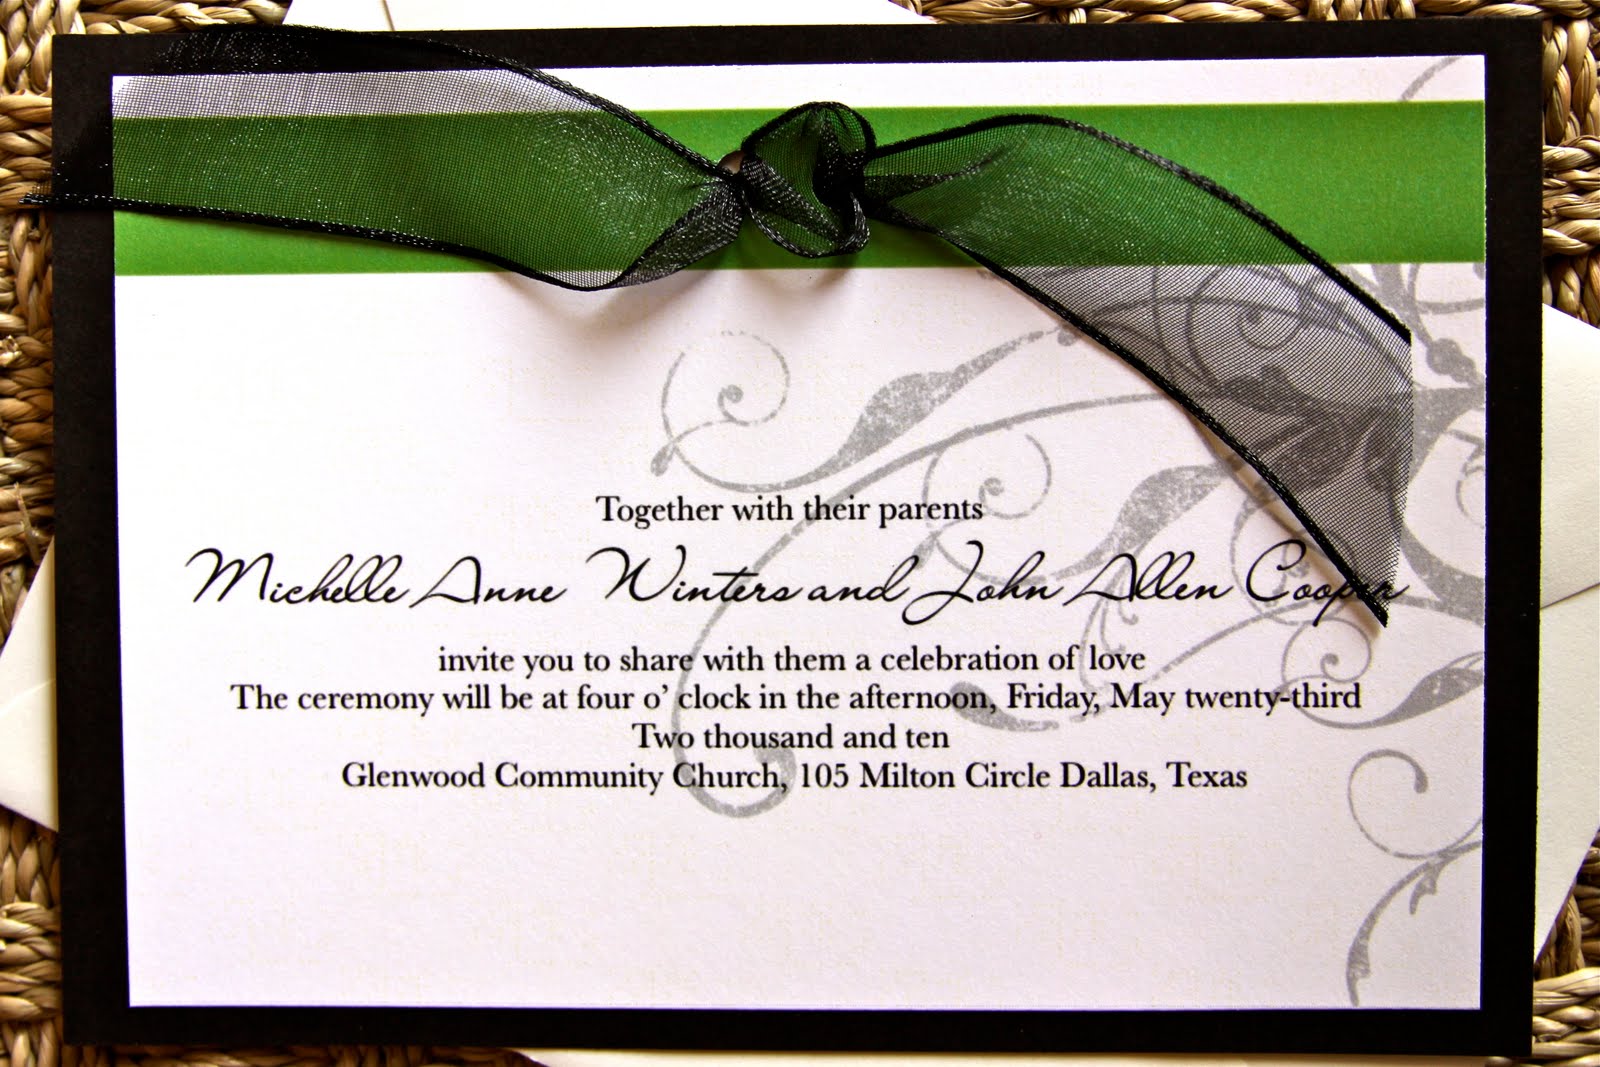 Together with their parents
Michelle Anne Winters and John Allen Cooper
invite you to share with them a celebration of love
The ceremony will be at four o' clock in the afternoon, Friday, May twenty-third
Two thousand and ten
Glenwood Community Church, 105 Milton Circle Dallas, Texas